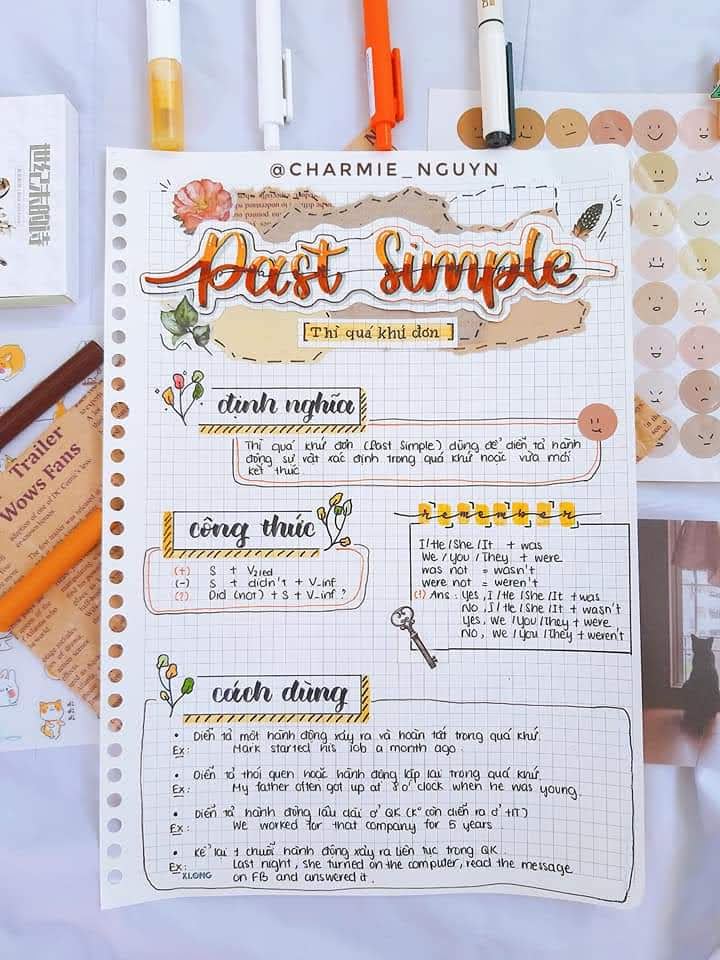 @CHARMIE_NGUYN
Past Simple
Thì quá khứ đơn
định nghĩa
Thì quá khứ đơn (Past Simple) dùng để diễn tả hành
động sự vật xác định trong quá khứ hoặc vừa mới
kết thúc
công thức
(+) S + V2/ed
(-) S + didn't + V_inf
(?) Did (not) + S + V_inf ?
remember
I/He/She/It + was
We/You/They + were
was not = wasn't
were not = weren't
(!) Ans: Yes, I/He/She/It + was
No, I/He/She/It + wasn't
Yes, We/You/They + were
No, We/You/They + weren't
cách dùng
• Diễn tả một hành động xảy ra và hoàn tất trong quá khứ.
Ex: Mark started his job a month ago.
• Diễn tả thói quen hoặc hành động lặp lại trong quá khứ
Ex: My father often got up at o'clock when he was young.
• Diễn tả hành động lâu dài ở QK (k° còn diễn ra ở +HT)
Ex: We worked for that company for 5 years
• Kể lại 1 chuỗi hành động xảy ra liên tục trong QK.
Ex: Last night, she turned on the computer, read the message
on FB and answered it.
XLONG
Trailer
Wows Fans